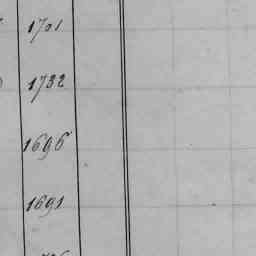 1701
1732
1696
1691